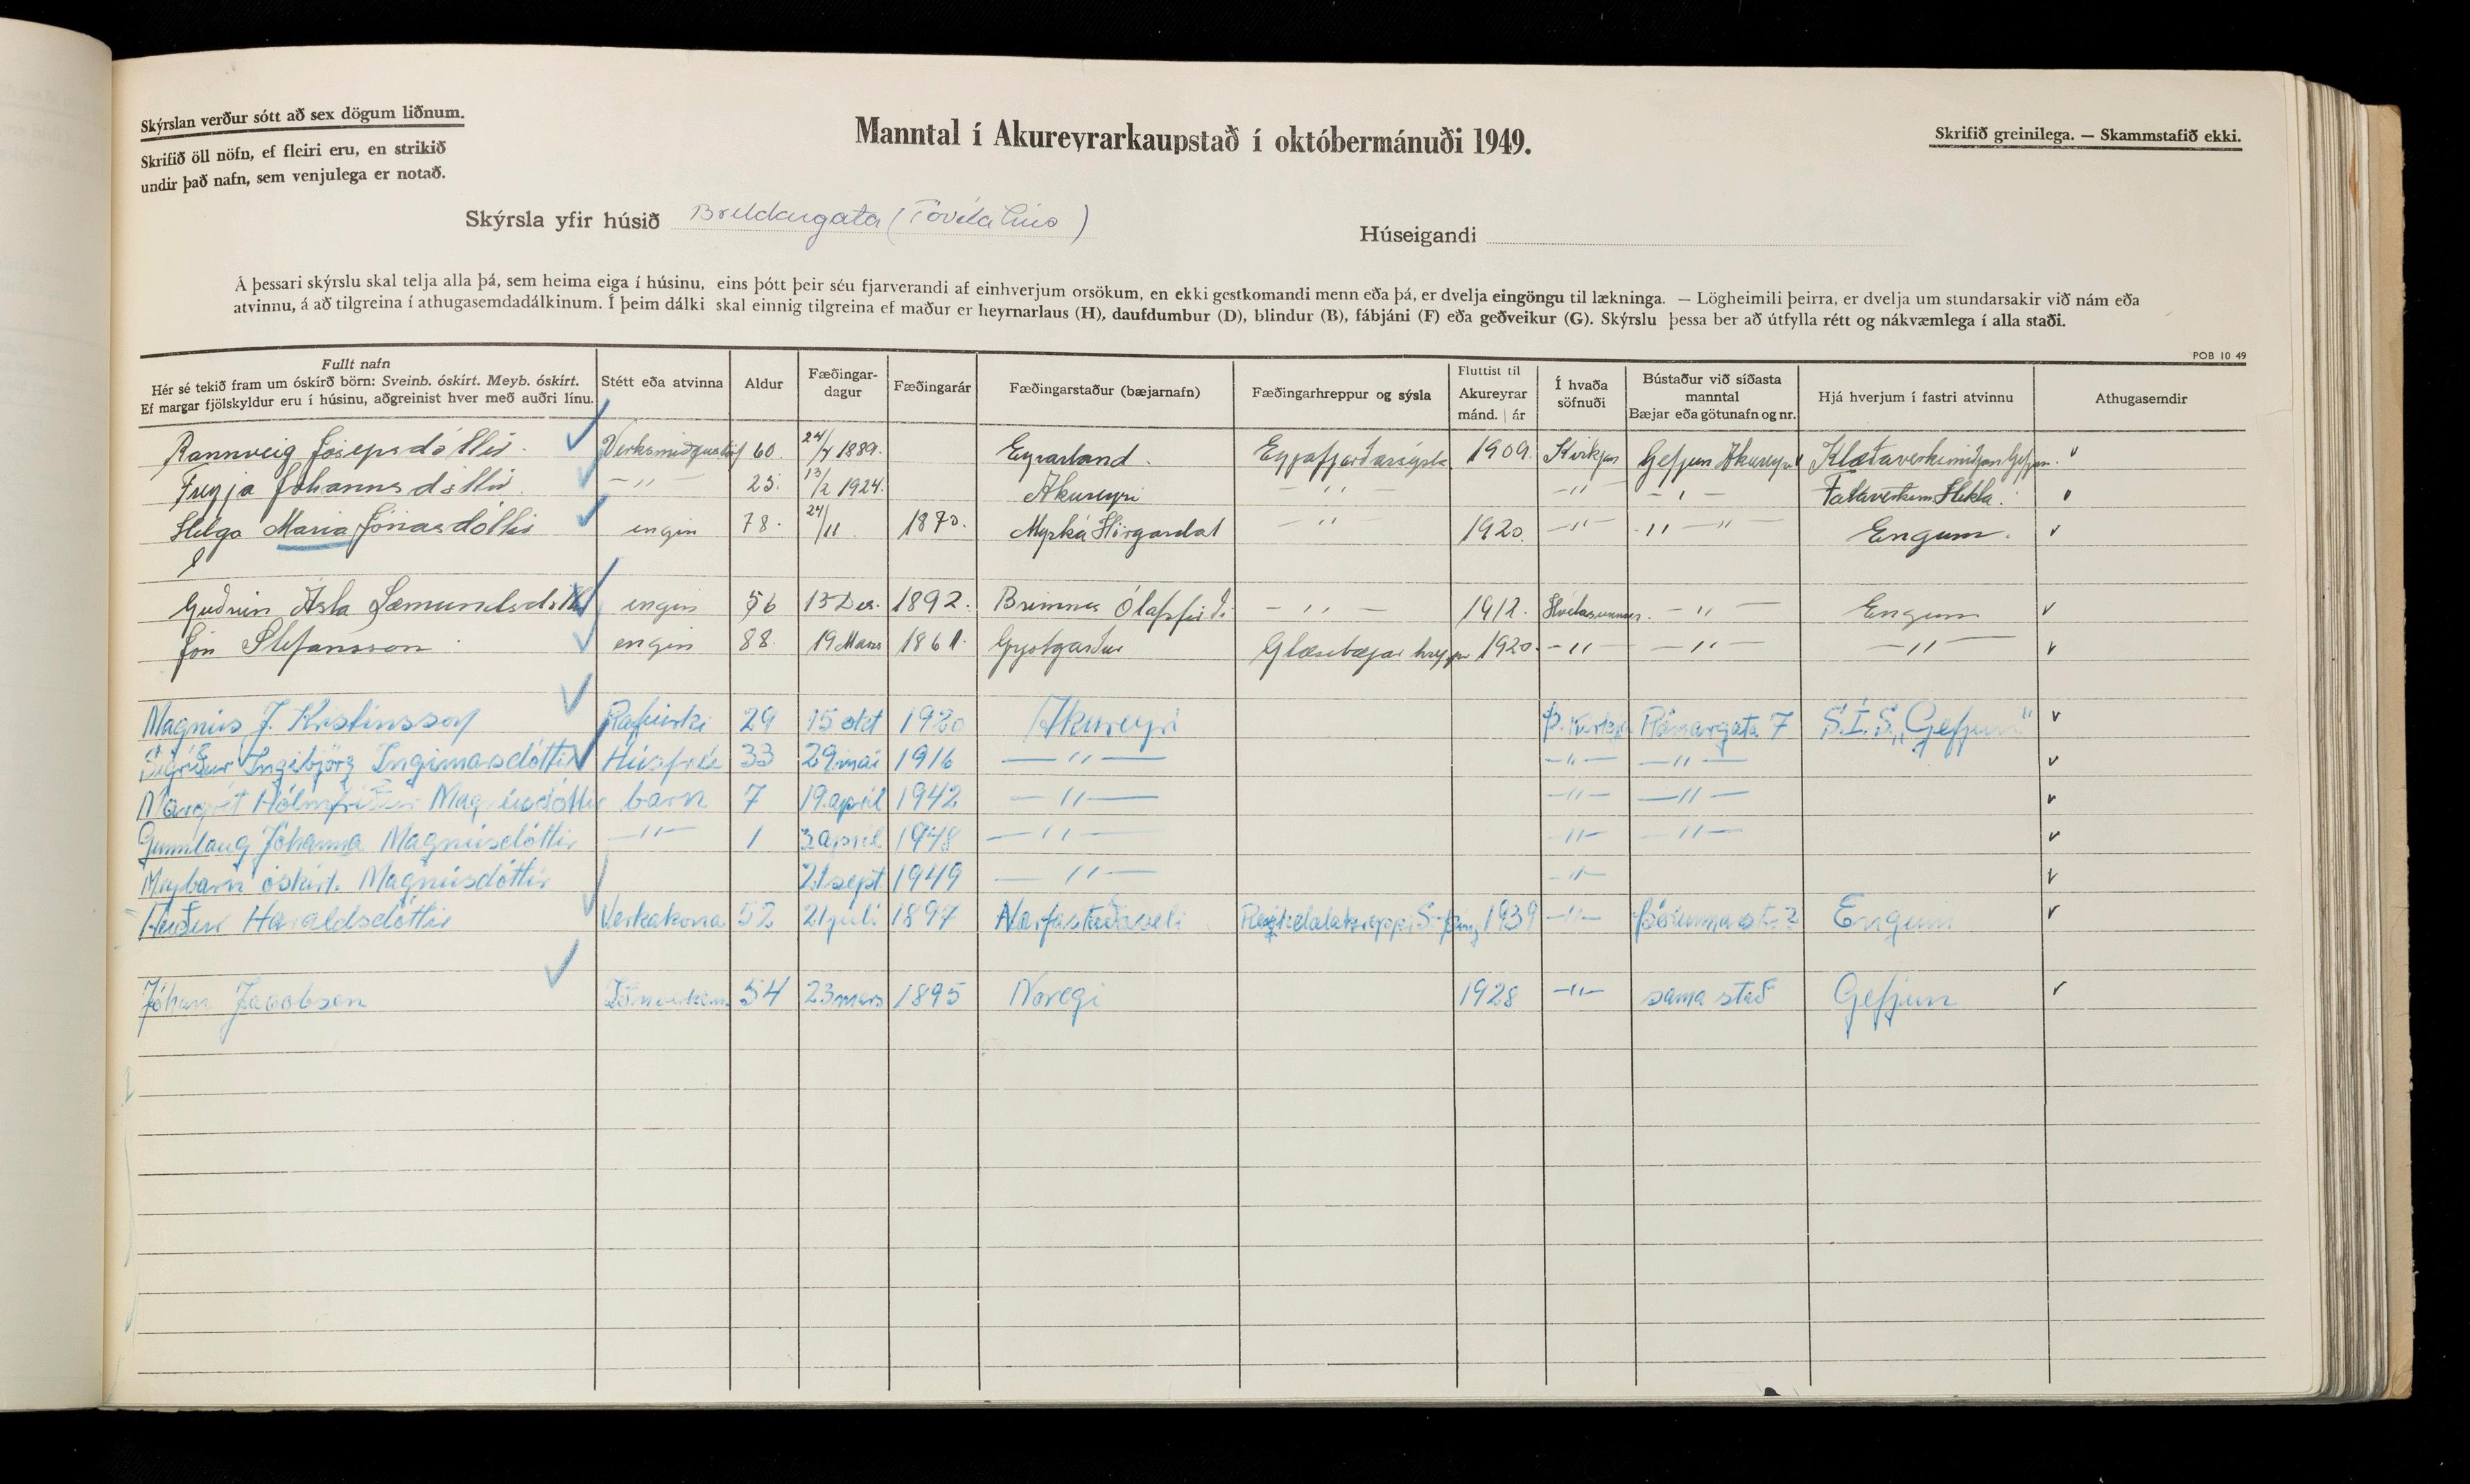 Skýrslan verður sótt að sex dögum liðnum.
Skrifið öll nöfn, ef fleiri eru, en strikið
undir það nafn, sem venjulega er notað.
Manntal í Akureyrarkaupstað í októbermánuði 1949.
Skrifið greinilega. — Skammstafið ekki.
Skýrsla yfir húsið
Húseigandi
Á þessari skýrslu skal telja alla þá, sem heima eiga í húsinu, eins þótt þeir séu fjarverandi af einhverjum orsökum, en ekki gestkomandi menn eða þá, er dvelja eingöngu til lækninga. — Lögheimili þeirra, er dvelja um stundarsakir við nám eða
atvinnu, á að tilgreina í athugasemdadálkinum. Í þeim dálki skal einnig tilgreina ef maður er heyrnarlaus (H), daufdumbur (D), blindur (B), fábjáni (F) eða geðveikur (G). Skýrslu þessa ber að útfylla rétt og nákvæmlega í alla staði.
POB 10 49
Fullt nafn
Hér sé tekið fram um óskírð börn: Sveinb. óskírt. Meyb. óskírt.
Ef margar fjölskyldur eru í húsinu, aðgreinist hver með auðri línu.
Stétt eða atvinna
Aldur
Fæðingar-
dagur
Fæðingarár
Fæðingarstaður (bæjarnafn)
Fæðingarhreppur og sýsla
Fluttist til
Akureyrar
mánd. | ár
Í hvaða
söfnuði
Bústaður við síðasta
manntal
Bæjar eða götunafn og nr.
Hjá hverjum í fastri atvinnu
Athugasemdir
Rannveig Jósepsdóttir 60. 24/7 1889. Eyrarland Eyjafjarðarsýsla 1909. Kirkjan Gefjun Akureyri Klæðaverksmiðjan Gefjun "
Freyja Jóhannsdóttir —"— 25. 13/2 1924. Akureyri —"— —"— —"— Fataverksm. Hekla
Helga María Jónasdóttir engin 78. 24/11 1870. Myrká Hörgárdal —"— 1920. —"— "—"— Engum.
Guðrún Ásta Sæmundsdóttir engin 56 13 Des. 1892. Brimnes Ólafsfirði —"— 1912. —"— Engum
Jón Stefánsson engin 88. 19 Mars 1861. Glæsibæjarhreppur 1920. —"— —"— —"—
Magnús J. Kristinsson Rafvirki 29 15 okt 1920 Akureyri Þ. Kirkja Ránargata 7 S.Í.S. „Gefjun"
Sigríður Ingibjörg Ingimarsdóttir Húsfrú 33 29. maí 1916 —"— —"— —"—
Margrét Hólmfríður Magnúsdóttir barn 7 19. apríl 1942 —"— —"— —"—
Gunnlaug Jóhanna Magnúsdóttir —"— 1 3 apríl 1948 —"— —"— —"—
Meybarn óskírt. Magnúsdóttir 21 sept. 1949 —"— —"—
Haraldsdóttir Verkakona 52 21 júlí 1897 Narfastaðaseli Reykdælahreppi S-Þing 1939 —"— Þórunnarst. Engum
Jóhan Jacobsen 54 23 mars 1895 Noregi 1928 —"— sama stað Gefjun